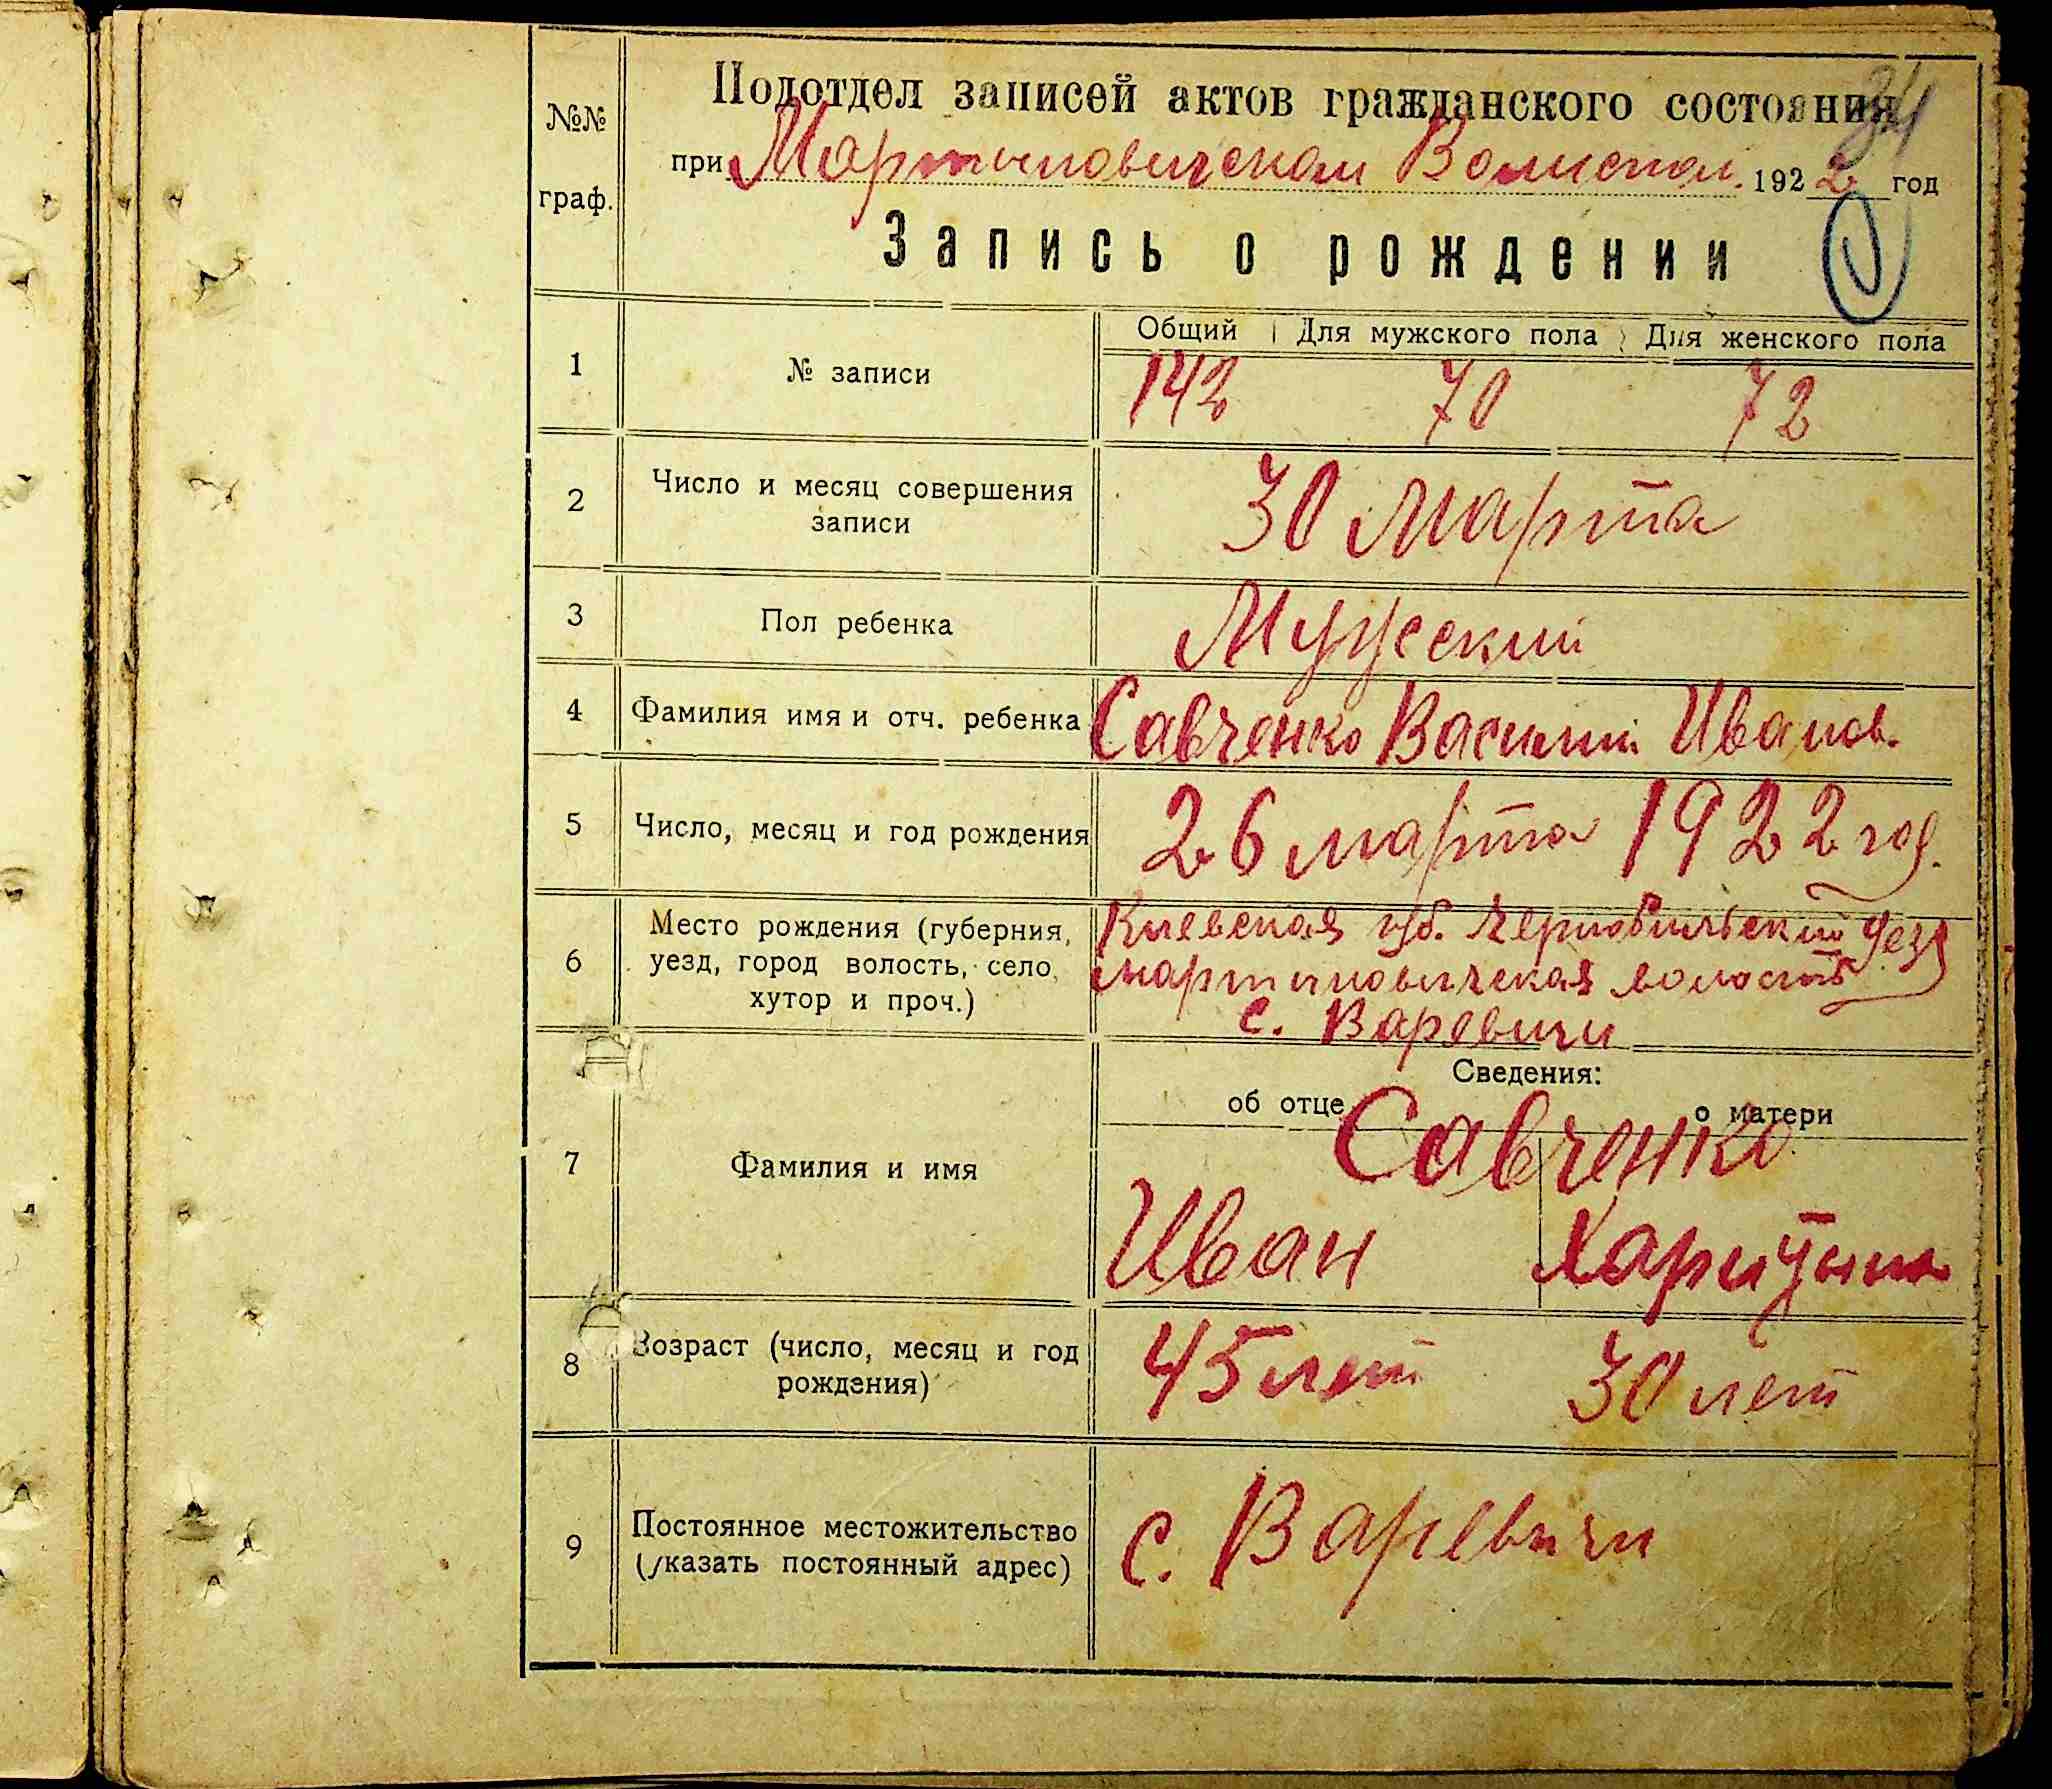 №№ граф.
Подотдел записей актов гражданского состояния
34
при Мартыновичском Волиспол. 1922 год
Запись о рождении
Общий Для мужского пола Для женского пола
1 № записи 142 70 72
2 Число и месяц совершения записи 30 марта
3 Пол ребенка Мужеский
4 Фамилия имя и отч. ребенка Савченко Василий Иванов.
5 Число, месяц и год рождения 26 марта 1922 год.
6 Место рождения (губерния, уезд, город волость, село, хутор и проч.)
Киевская губ. Чернобильский уезд
мартиновичская волость
с. Варевичи
Сведения:
об отце о матери
7 Фамилия и имя Савченко
Иван Харитына
8 Возраст (число, месяц и год рождения) 45 лет 30 лет
9 Постоянное местожительство (указать постоянный адрес) с. Варевичи